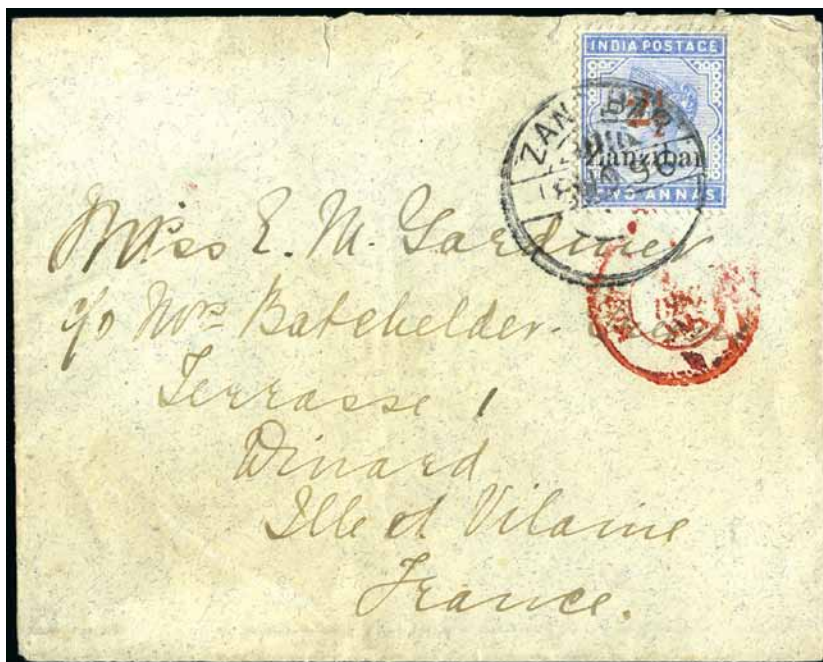 INDIA POSTAGE
2½
Zanzibar
TWO ANNAS
ZANZIBAR
Miss E. M. Gardiner
c/o Mrs Batchelder
Terrasse 1
Dinard
Ille et Vilaine
France.